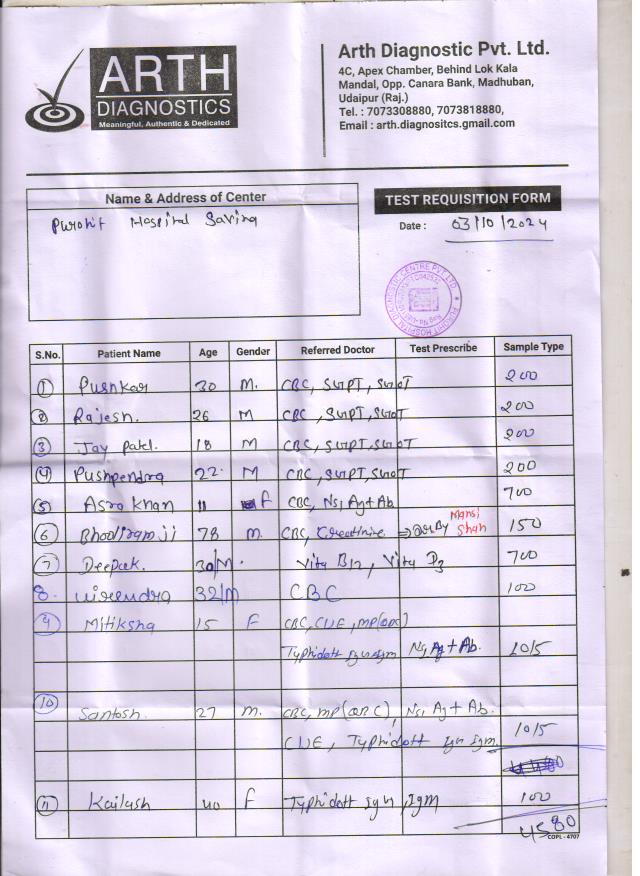 ARTH
DIAGNOSTICS
Meaningful, Authentic & Dedicated
Arth Diagnostic Pvt. Ltd.
4C, Apex Chamber, Behind Lok Kala
Mandal, Opp. Canara Bank, Madhuban,
Udaipur (Raj.)
Tel. : 7073308880, 7073818880,
Email : arth.diagnositcs.gmail.com
Name & Address of Center
Purohit Hospital Savina
TEST REQUISITION FORM
Date : 03/10/2024
S.No. Patient Name Age Gender Referred Doctor Test Prescribe Sample Type
1 Pushkar 30 M. CBC, SGPT, SGOT 200
2 Rajesh. 26 M CBC, SGPT, SGOT 200
3 Jay Patel. 18 M CBC, SGPT, SGOT 200
4 Pushpendra 22. M CBC, SGPT, SGOT 200
5 Asra khan 11 F CBC, Ns1 Ag+Ab 700
Mansi
6 Bhodiram ji 78 m. CBC, Creatinine Shah 150
7 Deepak. 30/M. Vita B12, Vita D3 700
8. Virendra 32/M CBC 100
9 Mitiksha 15 F CBC, CUE, MP(QBC)
Typhidott Igm Ns1 Ag + Ab. 1015
10 Santosh. 27 m. CBC, MP(QBC), Ns1 Ag + Ab.
CUE, Typhidott Igm. 1015
11 Kailash 40 F Typhidott Igm 100
4580
COPL - 4707